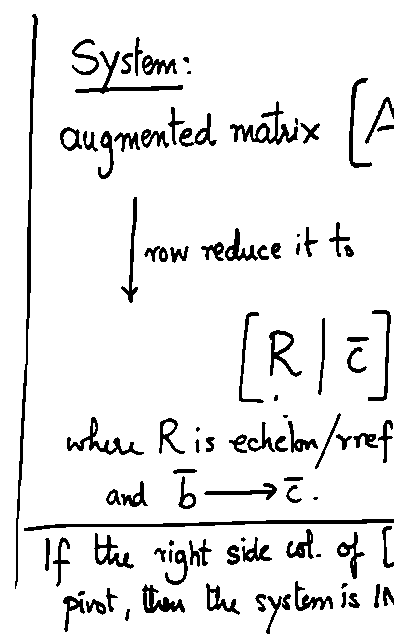 System:
augmented matrix [A
row reduce it to
[R | c̄]
where R is echelon/rref
and b̄ → c̄.
If the right side col. of [
pivot, then the system is IN